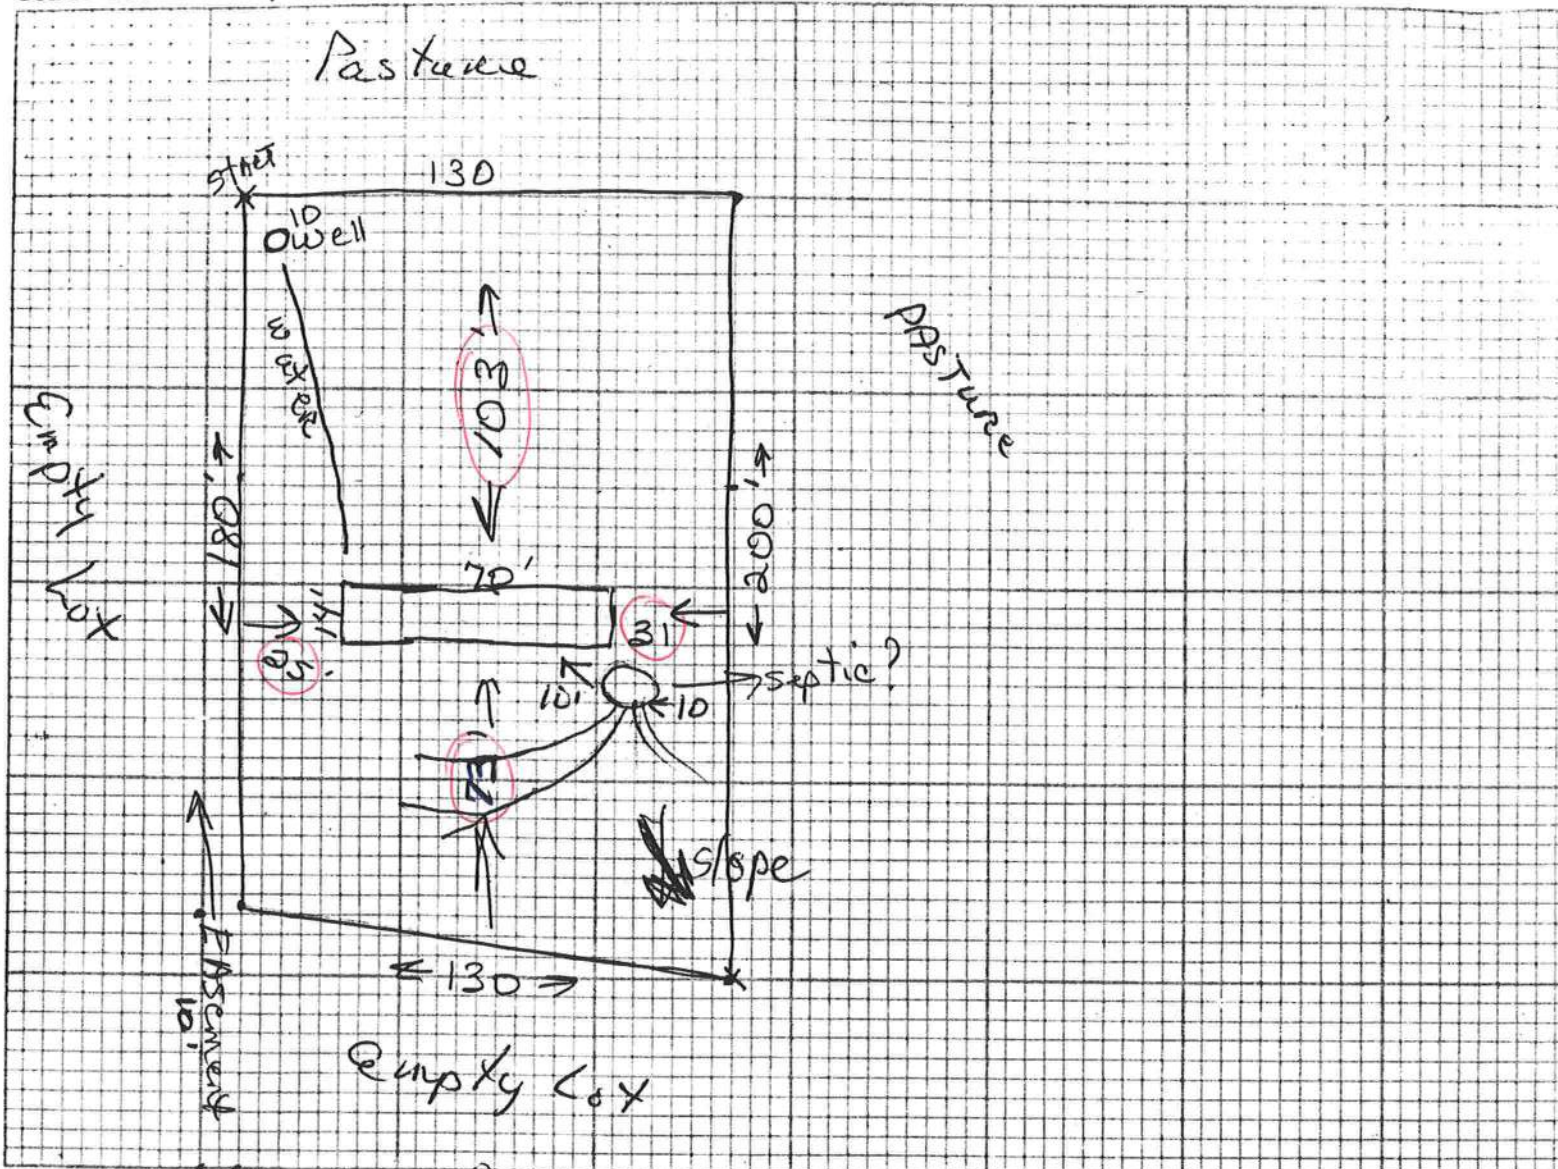 Pasture
start
130
10
Owell
water
103
PASTURE
Empty Lot
180'
200'
70'
14'
31'
25'
10'
10
septic?
73
slope
130
EASEMENT
10'
Empty Lot